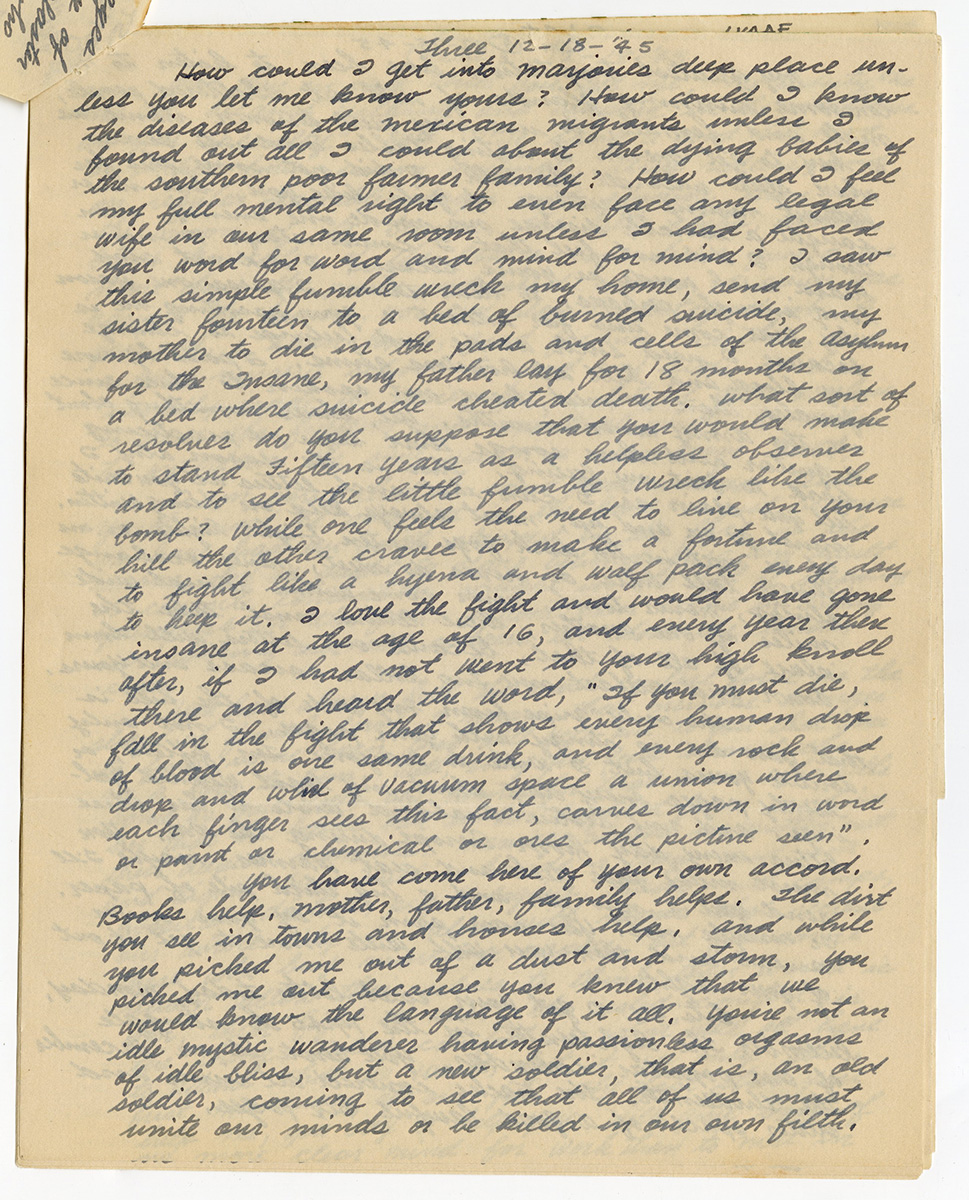 ages
e of
laster
ho
WAAF
Three 12-18-'45
How could I get into Marjories deep place un-
less you let me know yours? How could I know
the diseases of the mexican migrants unless I
found out all I could about the dying babies of
the southern poor farmer family? How could I feel
my full mental right to even face any legal
wife in our same room unless I had faced
you word for word and mind for mind? I saw
this simple fumble wreck my home, send my
sister fourteen to a bed of burned suicide, my
mother to die in the pads and cells of the Asylum
for the Insane, my father lay for 18 months on
a bed where suicide cheated death. what sort of
resolver do you suppose that you would make
to stand Fifteen years as a helpless observer
and to see the little fumble wreck like the
bomb? while one feels the need to live on your
hill the other craves to make a fortune and
to fight like a hyena and walf pack every day
to keep it. I love the fight and would have gone
insane at the age of 16, and every year there
after, if I had not went to your high knoll
there and heard the word, "If you must die,
fall in the fight that shows every human drop
of blood is one same drink, and every rock and
drop and whid of vacuum space a union where
each finger sees this fact, carves down in word
or paint or chemical or ores the picture seen".
you have come here of your own accord.
Books help. mother, father, family helps. The dirt
you see in towns and houses help. and while
you picked me out of a dust and storm, you
picked me out because you knew that we
would know the language of it all. you're not an
idle mystic wanderer having passionless orgasms
of idle bliss, but a new soldier, that is, an old
soldier, coming to see that all of us must
unite our minds or be killed in our own filth.